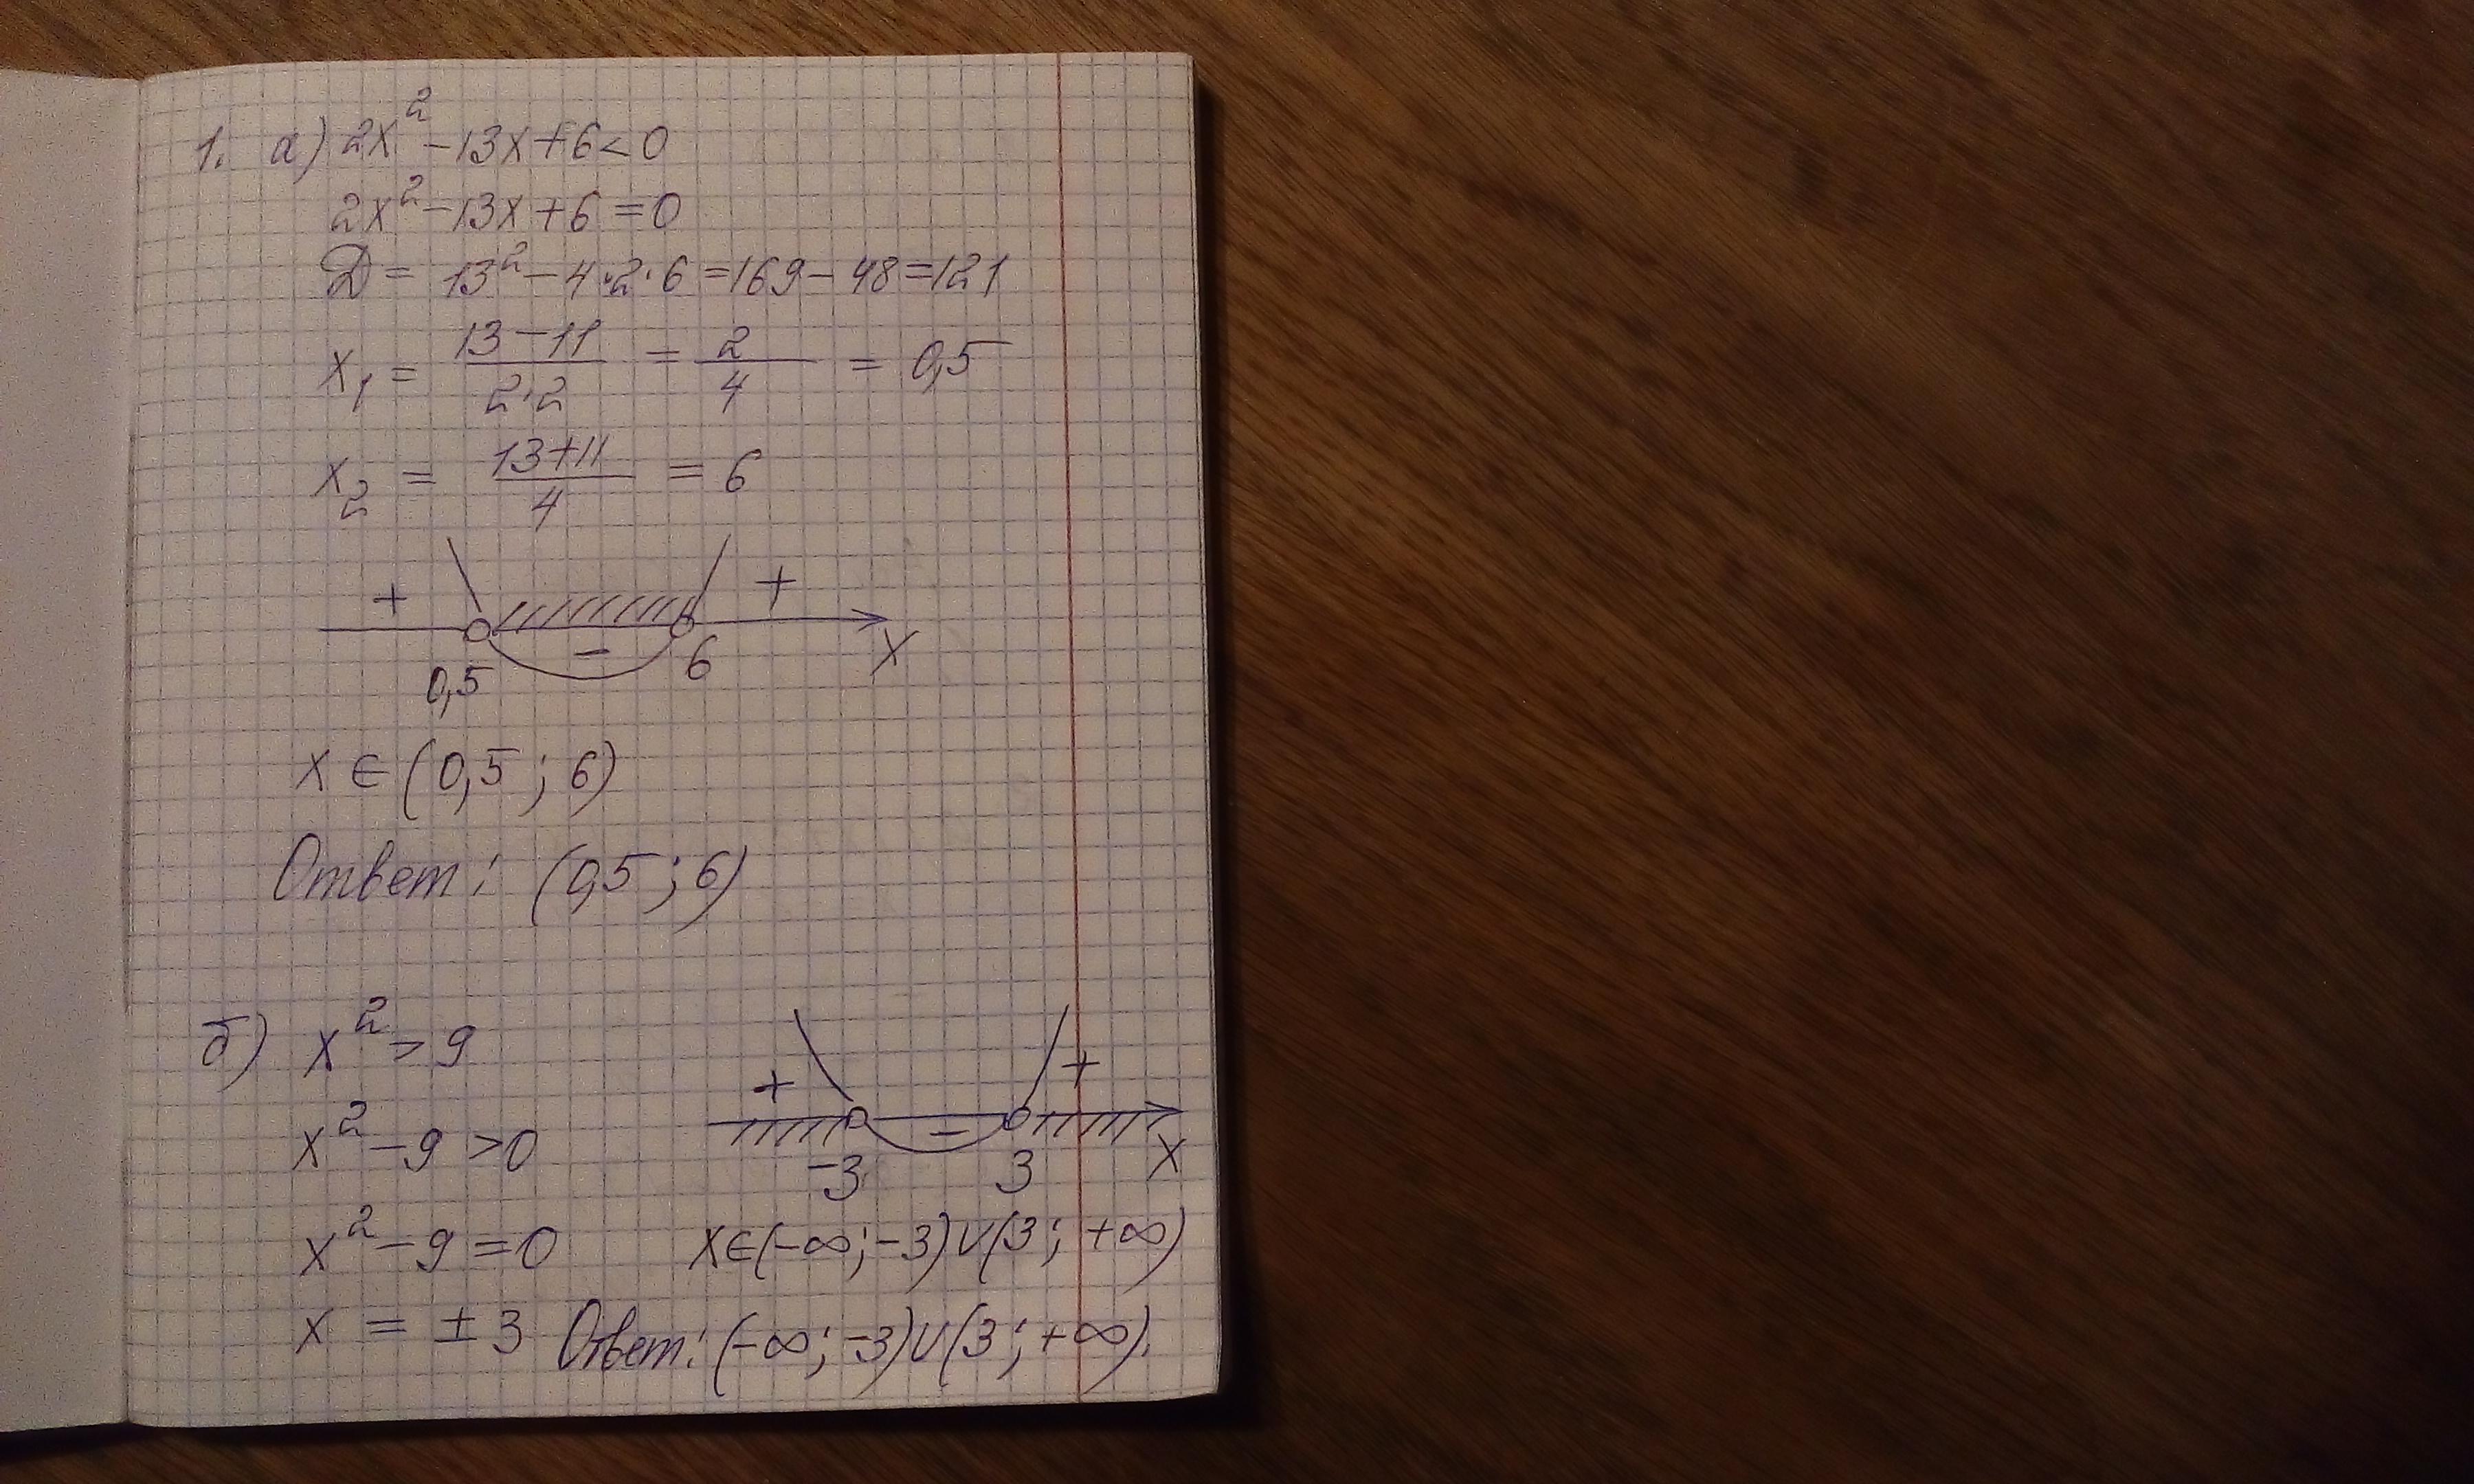 1. а) 2x² - 13x + 6 < 0
2x² - 13x + 6 = 0
D = 13² - 4·2·6 = 169 - 48 = 121
x₁ = (13 - 11)/(2·2) = 2/4 = 0,5
x₂ = (13 + 11)/4 = 6
+ - +
0,5 6 x
x ∈ (0,5 ; 6)
Ответ: (0,5 ; 6)
б) x² > 9
x² - 9 > 0
x² - 9 = 0
x = ± 3
+ - +
-3 3 x
x ∈ (-∞; -3) ∪ (3; +∞)
Ответ: (-∞; -3) ∪ (3; +∞).